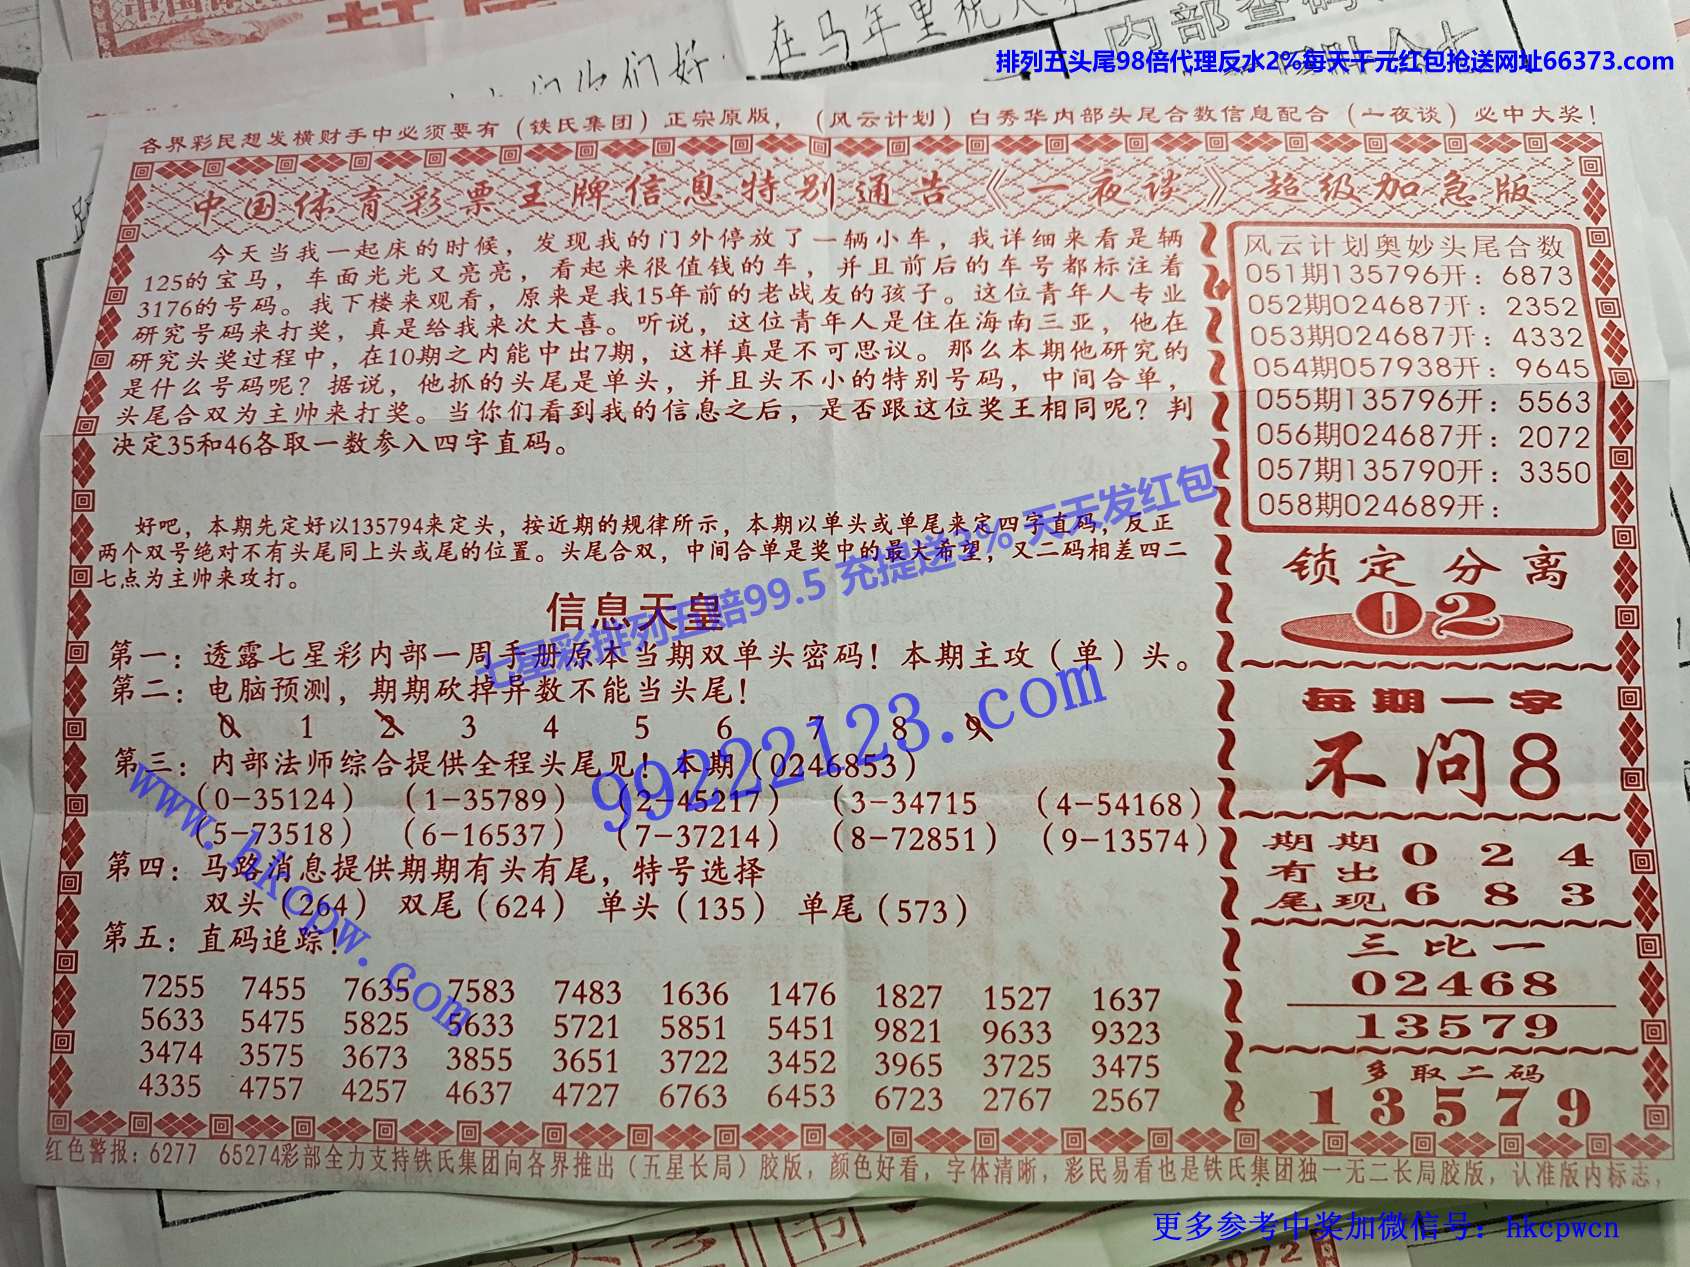 内部查码
在马年里祝大
们你们好.
排列五头尾98倍代理反水2%每天千元红包抢送网址66373.com
各界彩民想发横财手中必须要有（铁氏集团）正宗原版，（风云计划）白秀华内部头尾合数信息配合（一夜谈）必中大奖！
中国体育彩票王牌信息特别通告《一夜谈》超级加急版
今天当我一起床的时候，发现我的门外停放了一辆小车，我详细来看是辆
125的宝马，车面光光又亮亮，看起来很值钱的车，并且前后的车号都标注着
3176的号码。我下楼来观看，原来是我15年前的老战友的孩子。这位青年人专业
研究号码来打奖，真是给我来次大喜。听说，这位青年人是住在海南三亚，他在
研究头奖过程中，在10期之内能中出7期，这样真是不可思议。那么本期他研究的
是什么号码呢？据说，他抓的头尾是单头，并且头不小的特别号码，中间合单，
头尾合双为主帅来打奖。当你们看到我的信息之后，是否跟这位奖王相同呢？判
决定35和46各取一数参入四字直码。
好吧，本期先定好以135794来定头，按近期的规律所示，本期以单头或单尾来定四字直码，反正
两个双号绝对不有头尾同上头或尾的位置。头尾合双，中间合单是奖中的最大希望，又二码相差四二
七点为主帅来攻打。
信息天皇
第一：透露七星彩内部一周手册原本当期双单头密码！本期主攻（单）头。
第二：电脑预测，期期砍掉异数不能当头尾！
0 1 2 3 4 5 6 7 8 9
第三：内部法师综合提供全程头尾见！本期（0246853）
（0-35124）（1-35789）（2-45217）（3-34715 （4-54168）
（5-73518）（6-16537）（7-37214）（8-72851）（9-13574）
第四：马路消息提供期期有头有尾，特号选择
双头（264） 双尾（624） 单头（135） 单尾（573）
第五：直码追踪！
7255 7455 7635 7583 7483 1636 1476 1827 1527 1637
5633 5475 5825 5633 5721 5851 5451 9821 9633 9323
3474 3575 3673 3855 3651 3722 3452 3965 3725 3475
4335 4757 4257 4637 4727 6763 6453 6723 2767 2567
风云计划奥妙头尾合数
051期135796开：6873
052期024687开：2352
053期024687开：4332
054期057938开：9645
055期135796开：5563
056期024687开：2072
057期135790开：3350
058期024689开：
锁定分离
02
每期一字
不问8
期期有出尾现
0 2 4
6 8 3
三比一
02468
13579
多取二码
13579
七星彩排列五赔99.5 充提送3% 天天发红包
99222123.com
www.hkcpw.com
红色警报：6277 65274彩部全力支持铁氏集团向各界推出（五星长局）胶版，颜色好看，字体清晰，彩民易看也是铁氏集团独一无二长局胶版，认准版内标志，
更多参考中奖加微信号：hkcpwcn
2072